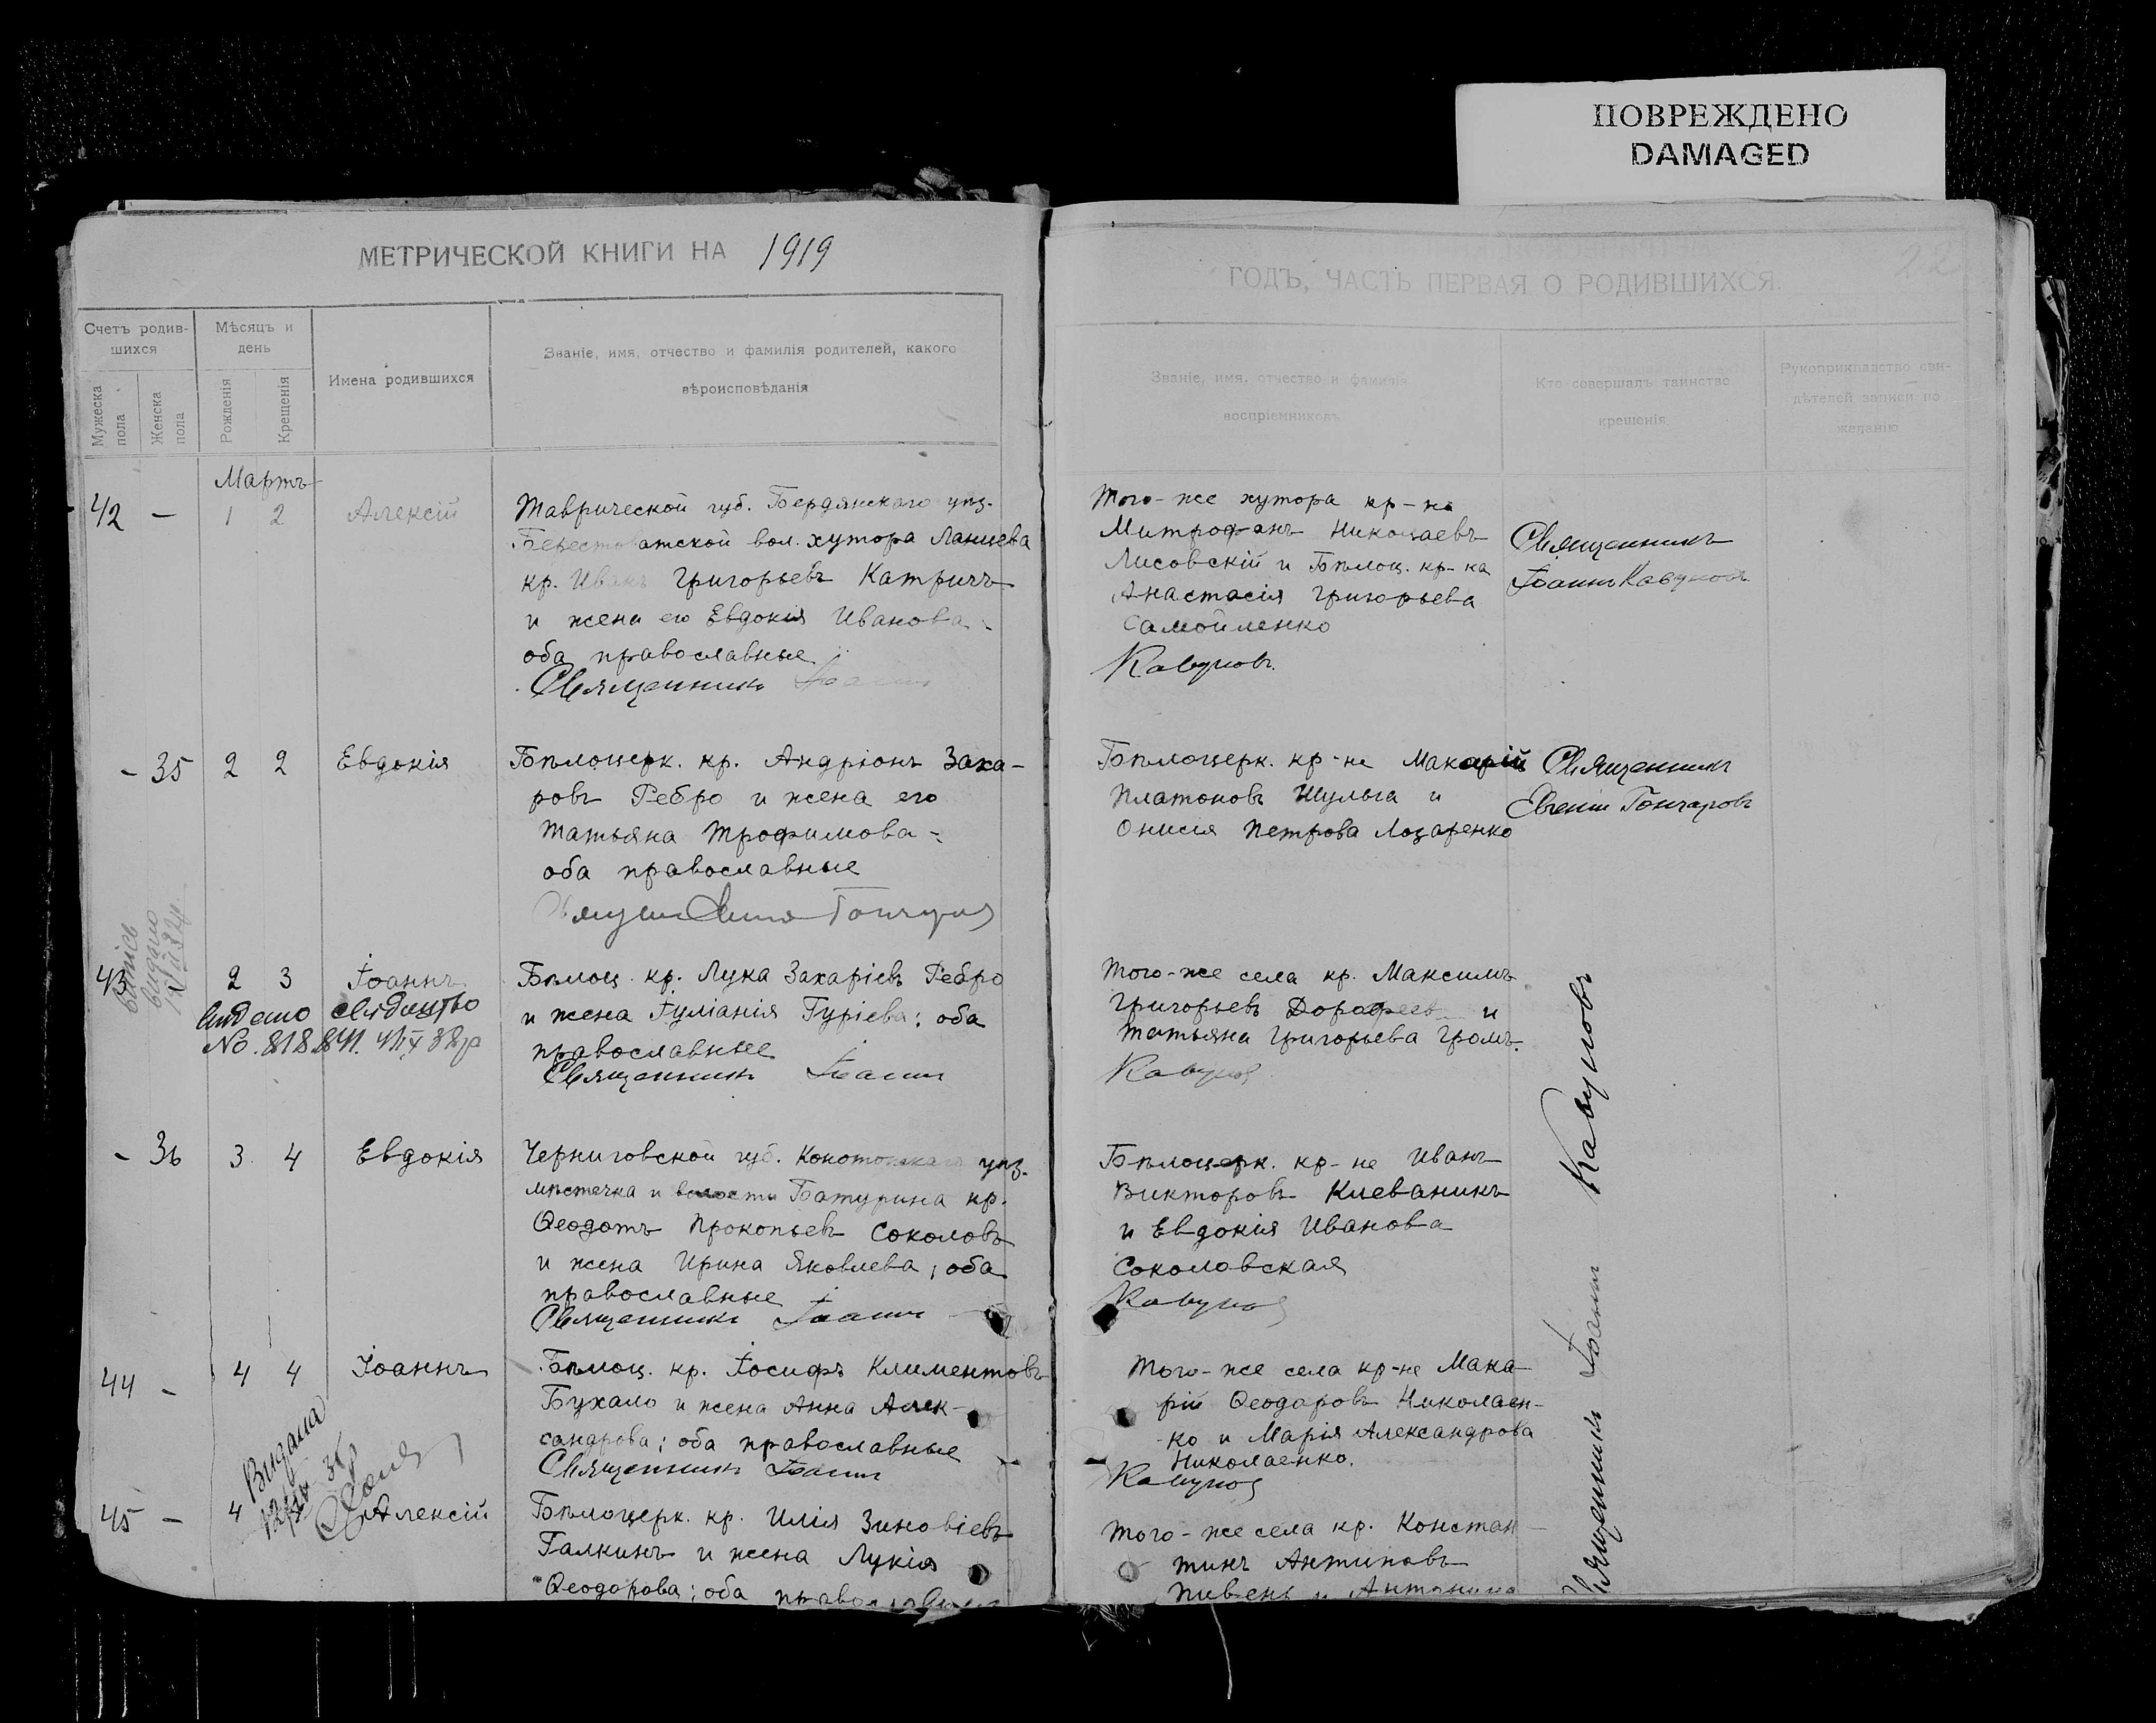 ПОВРЕЖДЕНО
DAMAGED
МЕТРИЧЕСКОЙ КНИГИ НА 1919
Счетъ родив-
шихся
Мужеска пола
Женска пола
Мѣсяцъ и
день
Рожденія
Крещенія
Имена родившихся
Званіе, имя, отчество и фамилія родителей, какого
вѣроисповѣданія
Мартъ
42 — 1 2 Алексій
Таврической губ. Бердянскаго уѣз.
Берестоватской вол. хутора Ланцева
кр. Иванъ Григорьевъ Катричъ
и жена его Евдокія Иванова
оба православные
Священникъ Іоаннъ
- 35 2 2 Евдокія
Бѣлоцерк. кр. Андріонъ Заха-
ровъ Ребро и жена его
Татьяна Трофимова-
оба православные
43 2 3 Іоаннъ
No. 818
Бѣлоц. кр. Лука Захаріевъ Ребро
и жена Іуліанія Гуріева; оба
православные
Священникъ Іоаннъ
- 36 3 4 Евдокія
Черниговской губ. Конотопскаго уѣз.
мѣстечка и волости Батурина кр.
Ѳеодотъ Прокопьевъ Соколовъ
и жена Ирина Яковлева; оба
православные
Священникъ Іоаннъ
44 - 4 4 Іоаннъ
Бѣлоц. кр. Іосифъ Климентовъ
Бухало и жена Анна Алек-
сандрова; оба православные
Священникъ Іоаннъ
45 - 4 Алексій
Бѣлоцерк. кр. Илія Зиновіевъ
Галкинъ и жена Лукія
Ѳеодорова; оба
22
ГОДЪ, ЧАСТЬ ПЕРВАЯ О РОДИВШИХСЯ.
Званіе, имя, отчество и фамилія
воспріемниковъ
Кто совершалъ таинство
крещенія
Рукоприкладство сви-
дѣтелей записи по
желанію
Того-же хутора кр-нъ
Митрофанъ Николаевъ
Лисовскій и Бѣлоц. кр-ка
Анастасія Григорьева
Самойленко
Кавуновъ
Священникъ
Іоаннъ Кавуновъ
Бѣлоцерк. кр-не Макарій
Платоновъ Шульга и
Онисія Петрова Лозаренко
Священникъ
Евгеній Гончаровъ
Того-же села кр. Максимъ
Григорьевъ Дорофеев и
Татьяна Григорьева Громъ.
Кавуновъ
Бѣлоцерк. кр-не Иванъ
Викторовъ Клеваникъ
и Евдокія Иванова
Соколовская
Кавуновъ
Того-же села кр-не Мака-
рій Ѳеодоровъ Николаен-
ко и Марія Александрова
Николаенко.
Кавуновъ
Того-же села кр. Констан-
тинъ Антиповъ
Пивень и Антонина
Священникъ Іоаннъ Кавуновъ